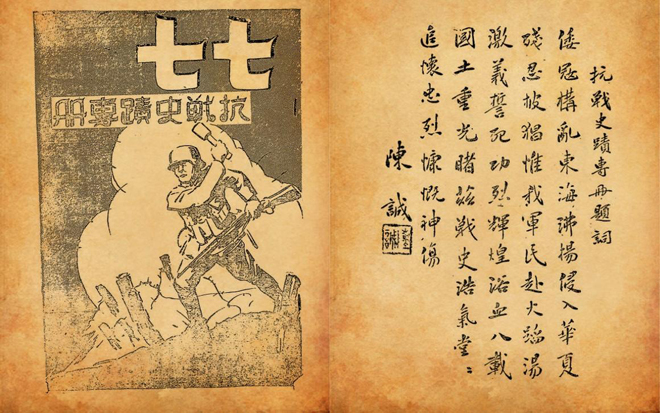 七七
抗戰史蹟專冊
抗戰史蹟專冊題詞
倭寇構亂東海沸揚侵入華夏
殘忍披猖惟我軍民赴火蹈湯
激義誓死功烈輝煌浴血八載
國土重光睹茲戰史浩氣堂〻
追懷忠烈慷慨神傷
陳誠